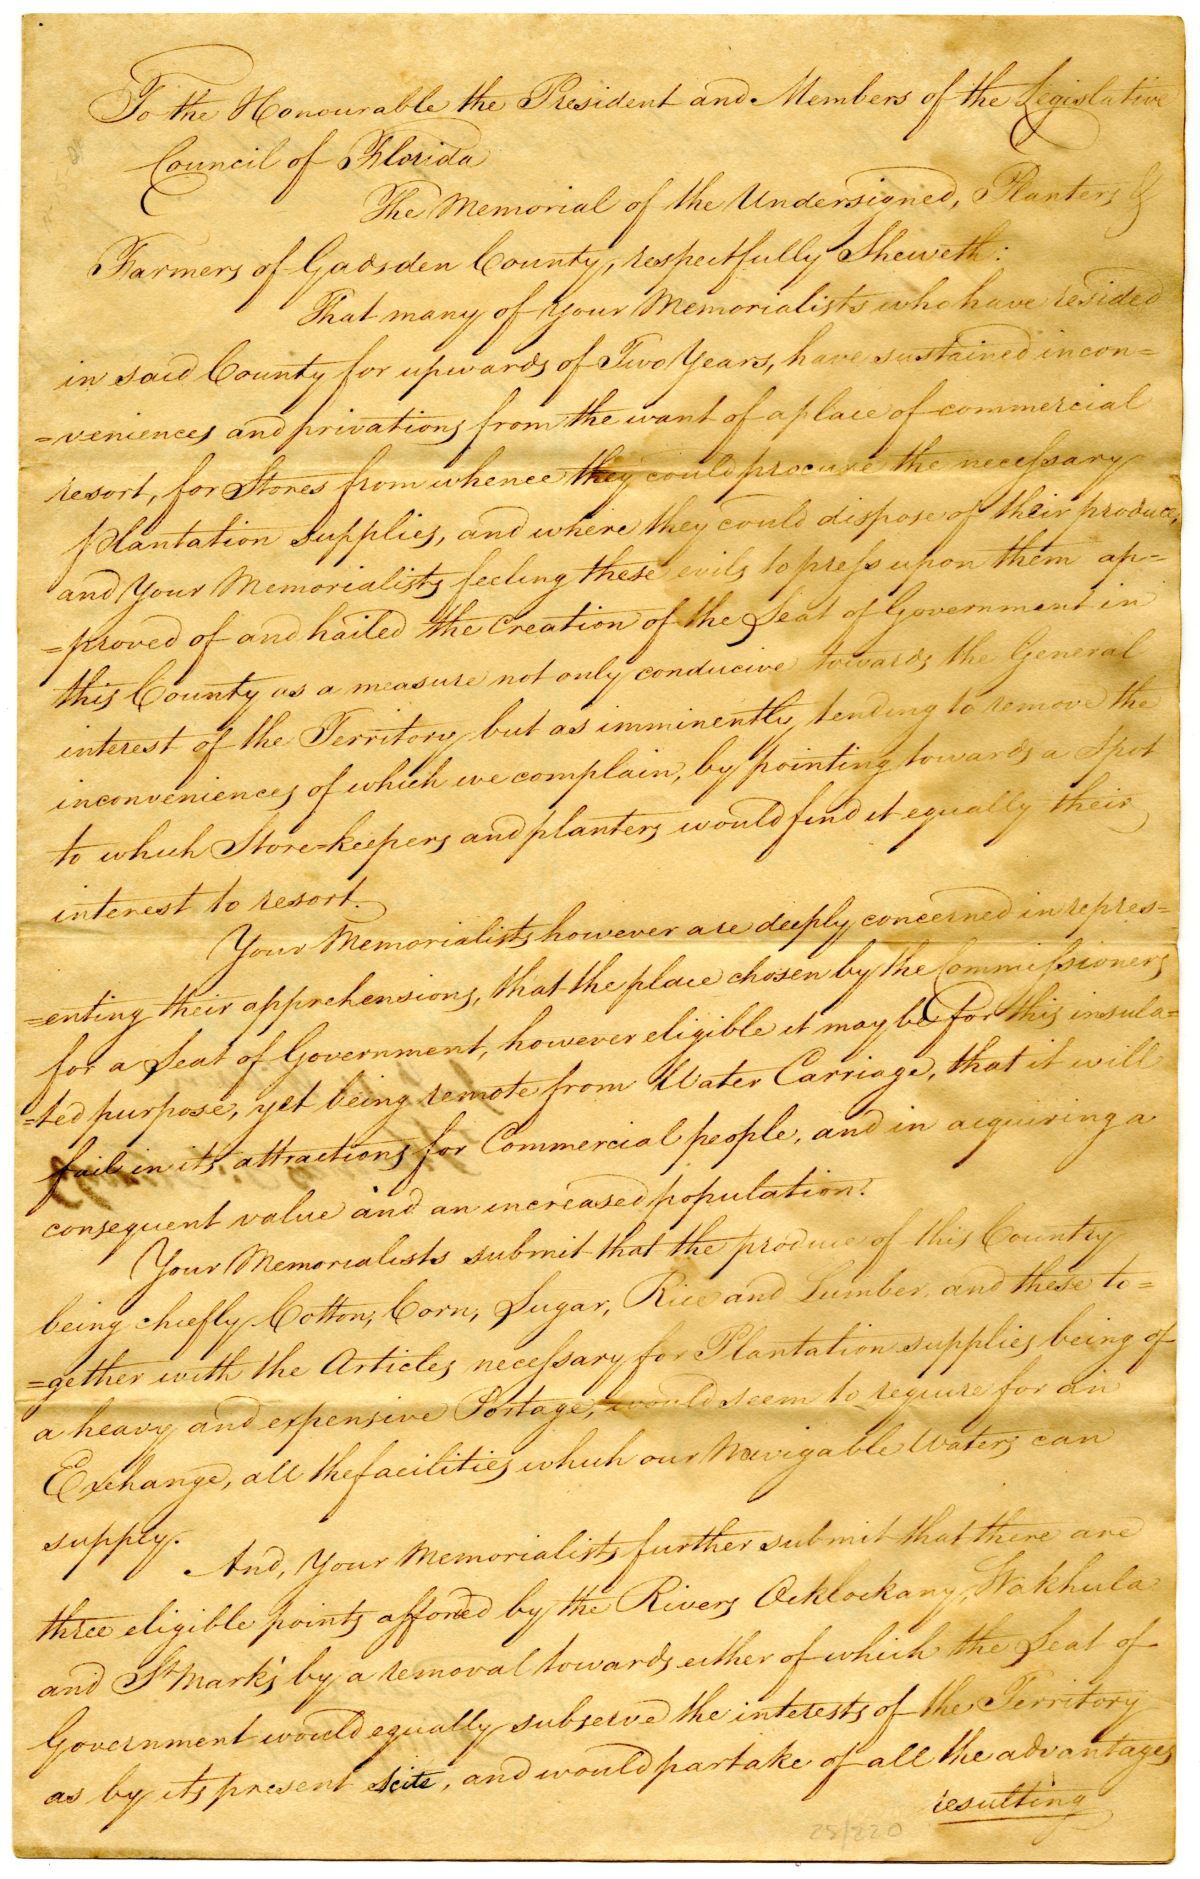 To the Honourable the President and Members of the Legislative
Council of Florida
The Memorial of the Undersigned, Planters &
Farmers of Gadsden County, respectfully Sheweth:
That many of Your Memorialists who have resided
in said County for upwards of Two Years, have sustained incon=
=veniences and privations from the want of a place of commercial
resort, for Stores from whence they could procure the necessary
plantation supplies, and where they could dispose of their produce,
and Your Memorialists feeling these evils to press upon them ap=
=proved of and hailed the Creation of the Seat of Government in
this County as a measure not only conducive towards the General
interest of the Territory but as imminently tending to remove the
inconveniences of which we complain, by pointing towards a Spot
to which Store=keepers and planters would find it equally their
interest to resort.
Your Memorialists however are deeply concerned in repres=
=enting their apprehensions, that the place chosen by the Commissioners
for a Seat of Government, however eligible it may be for this insula=
=ted purpose, yet being remote from Water Carriage, that it will
fail in its attractions for Commercial people, and in acquiring a
consequent value and an increased population.
Your Memorialists submit that the produce of this Country
being chiefly Cotton, Corn, Sugar, Rice and Lumber, and these to=
=gether with the Articles necessary for Plantation supplies being of
a heavy and expensive Portage, would seem to require for an
Exchange, all the facilities which our Navigable Waters can
supply.
And, Your Memorialists further submit that there are
three eligible points afforded by the Rivers Ocklockany, Wakhula
and St Mark's by a removal towards either of which the Seat of
Government would equally subserve the interests of the Territory
as by its present scite, and would partake of all the advantages
resulting
25/220